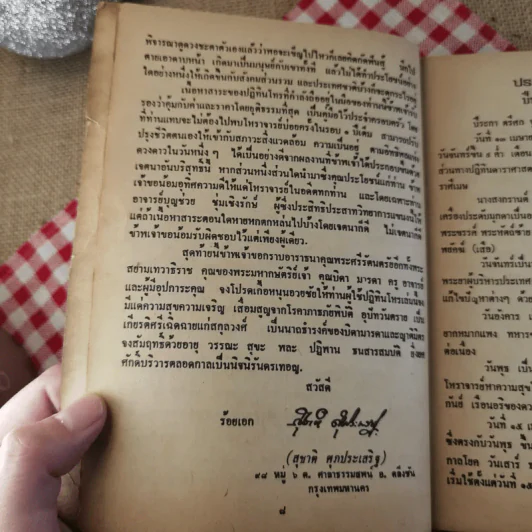 พิจารณาดูดวงชะตาตัวเองแล้วว่าพอจะเจ๊งไปไหวก็เลยคิดกัดฟันสู้
ตายเอาดาบหน้า เกิดมาเป็นมนุษย์กับเขาทั้งที แล้วไม่ได้ทำประโยชน์อย่าง
ใดอย่างหนึ่งให้เกิดขึ้นกับสังคมส่วนรวม และประเทศชาติบ้าง
เนื้อหาสาระของปฏิทินโหรที่กำลังถืออยู่ในมือของท่าน
รองว่าคุ้มกับค่าและราคาโดยยุติธรรมที่สุด เป็นคู่มือไว้ประจำครอบครัว โดย
ที่ท่านแทบจะไม่ต้องไปพบโหราจารย์บ่อยครั้งในรอบ ๑ ปีเต็ม สามารถปรับ
ปรุงชีวิตตนเองให้เข้ากับสภาวะสิ่งแวดล้อม ความเป็นอยู่ ตามอิทธิพลของ
ดวงดาวในวันหนึ่ง ๆ ได้เป็นอย่างดีจากผลงานที่ข้าพเจ้าได้ประกอบขึ้นด้วย
เจตนาอันบริสุทธิ์นี้ หากส่วนหนึ่งส่วนใดนำมาซึ่งคุณประโยชน์แก่ท่าน ข้าพ
เจ้าขอน้อมอุทิศความดีให้แด่โหราจารย์ในอดีตทุกท่าน และโดยเฉพาะท่าน
อาจารย์บุญช่วย ชุ่มเชิงรักษ์ ผู้ซึ่งประสิทธิประสาทวิทยาการแขนงนี้ให้
แต่ถ้าเนื้อหาสาระตอนใดหายหกตกหล่นไปบ้างโดยเจตนาก็ดี ไม่เจตนาก็ดี
ข้าพเจ้าขอน้อมรับผิดชอบไว้แต่เพียงผู้เดียว
สุดท้ายนี้ข้าพเจ้าขอกราบอาราธนาคุณพระศรีรัตนตรัยอีกทั้งพระ
สยามเทวาธิราช คุณของพระมหากษัตริย์เจ้า คุณบิดา มารดา ครู อาจารย์
และผู้มีอุปการะคุณ จงโปรดเกื้อหนุนอวยชัยให้ท่านผู้ใช้ปฏิทินโหรเล่มนี้จง
มีแต่ความสุขความเจริญ เสื่อมสูญจากโรคาภาธภัยพิบัติ อุปัทวันตราย เป็น
เกียรติศรีเฉิดฉายแก่สกุลวงศ์ เป็นนาถธำรงค์ของบิดามารดาและญาติมิตร
จงสัมฤทธิ์ด้วยอายุ วรรณะ สุขะ พละ ปฏิภาน ธนสารสมบัติ
ศักดิ์บริวารตลอดกาลเป็นนิจนิรันดรเทอญ.
สวัสดี
ร้อยเอก
(สุชาติ ศุภประเสริฐ)
๙๘ หมู่ ๖ ต. ศาลาธรรมสพน์ อ. ตลิ่งชัน
กรุงเทพมหานคร
๘
ประกา ตรีศก
วันที่ ๑๓ เมษายน
วันจันทร์ขึ้น
ส่วนทางปฏิทินดาราศาสตร์
ราศีเมษ
นางสงกรานต์
พยัคฆ์ (เสือ)
วันจันทร์เป็น
วันอังคาร
ต่อเนื่อง
วันพุธ เป็น
โหราจารย์ทำความสุข
วันที่ ๑๕
ซึ่งตรงกับวันพุธ ขึ้น
กาลโยค วันเสาร์
เริ่มใช้ตั้งแต่วันที่ ๑๕